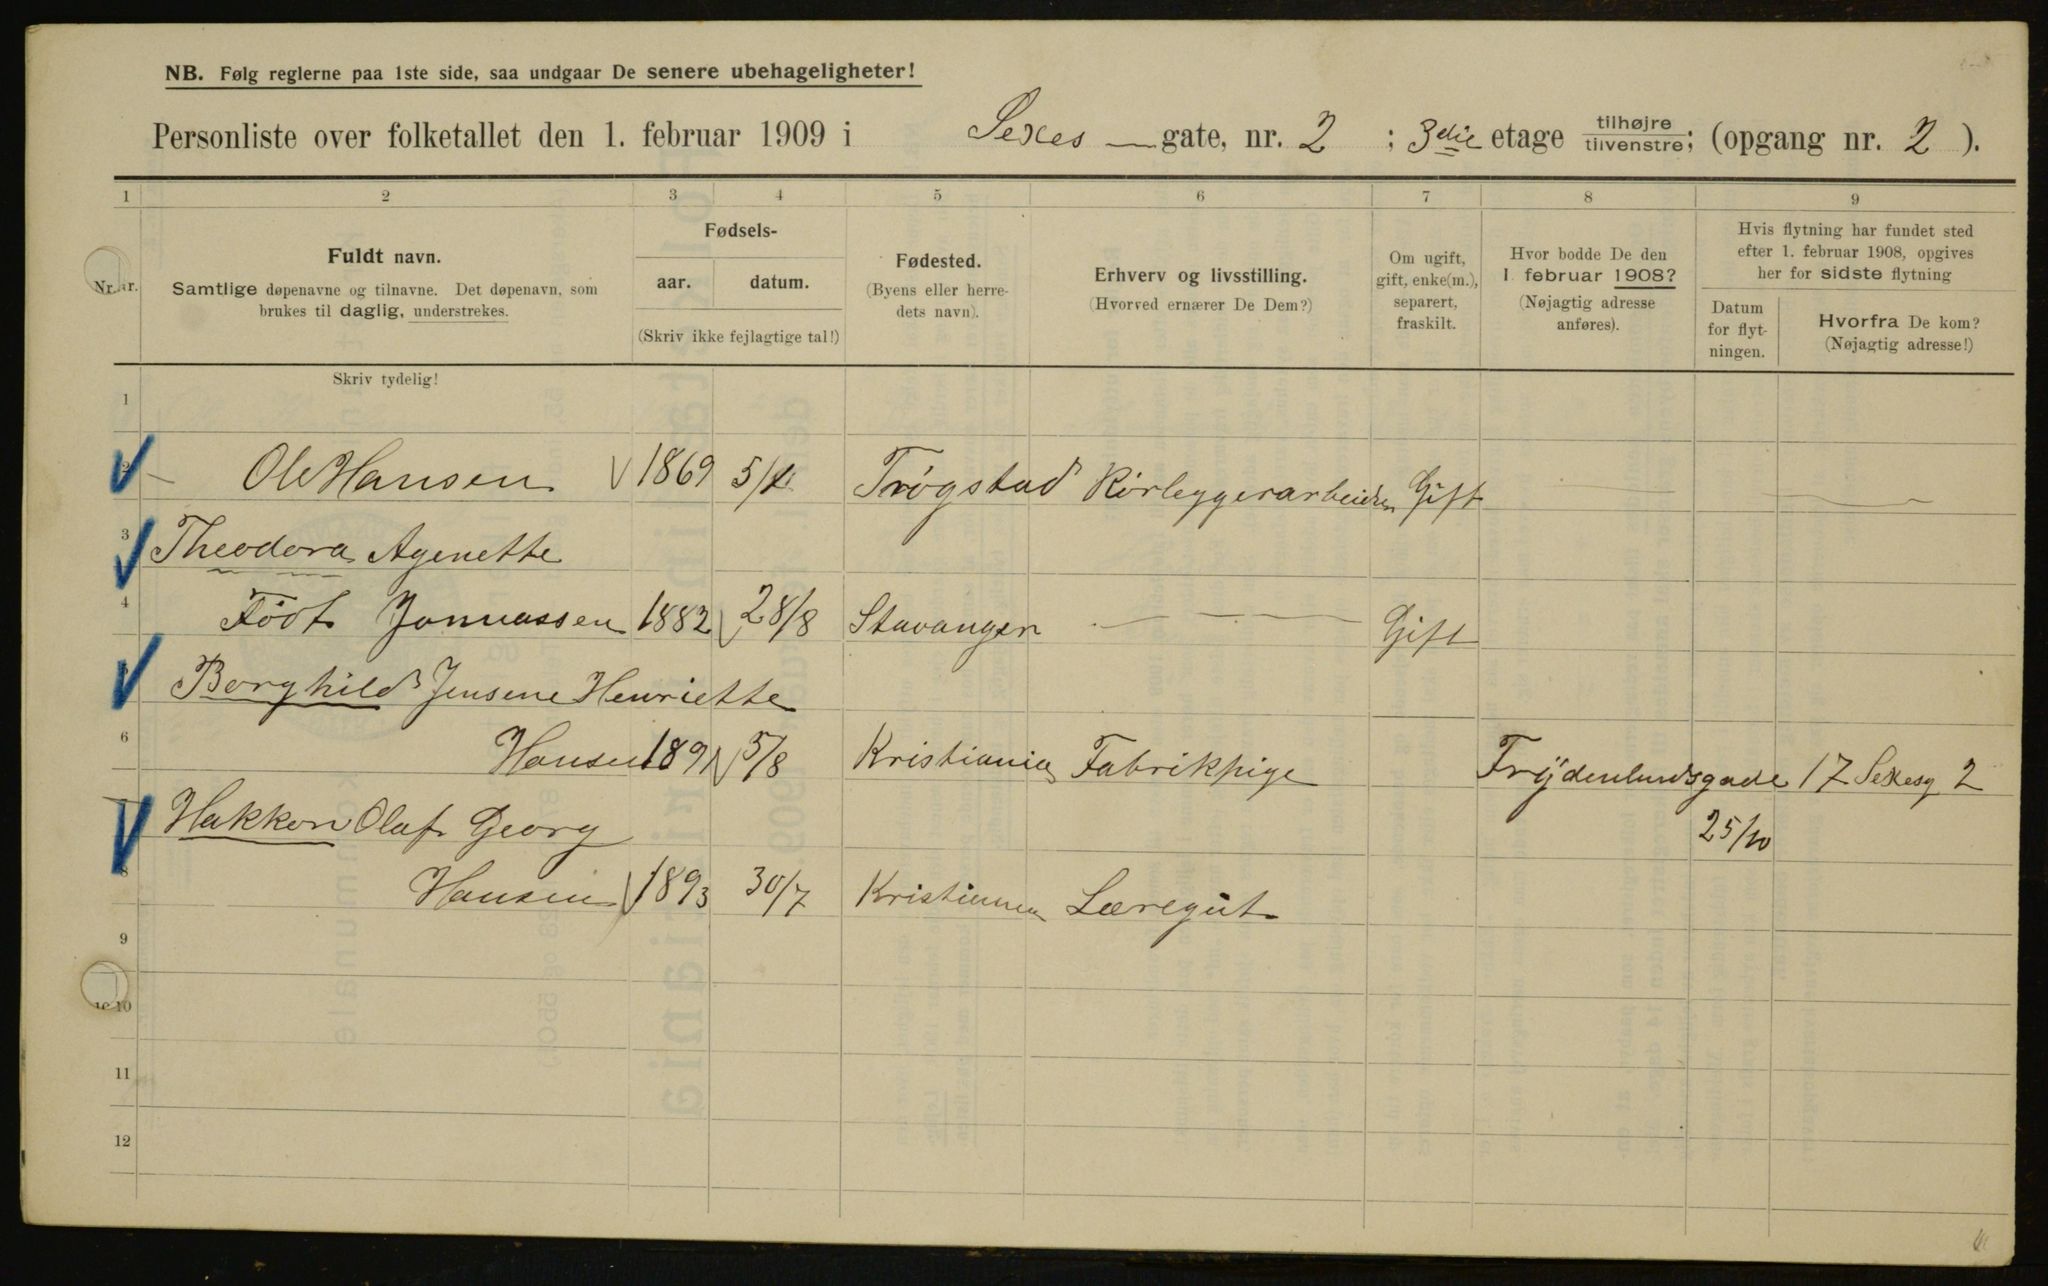 NB. Følg reglerne paa 1ste side, saa undgaar De senere ubehageligheter!
Personliste over folketallet den 1. februar 1909 i Sexes — gate, nr. 2 ; 3die etage tilhøjre/tilvenstre; (opgang nr. 2 ).
1 2 3 4 5 6 7 8 9
Nr.
Fuldt navn.
Samtlige døpenavne og tilnavne. Det døpenavn, som
brukes til daglig, understrekes.
Fødsels-
aar. datum.
(Skriv ikke fejlagtige tal!)
Fødested.
(Byens eller herre-
dets navn).
Erhverv og livsstilling.
(Hvorved ernærer De Dem?)
Om ugift,
gift, enke(m.),
separert,
fraskilt.
Hvor bodde De den
1. februar 1908?
(Nøjagtig adresse
anføres).
Hvis flytning har fundet sted
efter 1. februar 1908, opgives
her for sidste flytning
Datum
for flyt-
ningen.
Hvorfra De kom?
(Nøjagtig adresse!)
Skriv tydelig!
1
2 Ole Hansen 1869 5/ Trøgstad Rørleggerarbeider Gift
3 Theodora Agenette
4 Født Jonnassen 1882 28/8 Stavanger — Gift
5 Borghild Jensene Henriette
6 Hansen 1891 5/8 Kristiania Fabrikpige Frydenlundsgade 17 Sexesg 2
7 Hakkon Olaf Georg 25/10
8 Hansen 1893 30/7 Kristiania Læregut
9
10
11
12